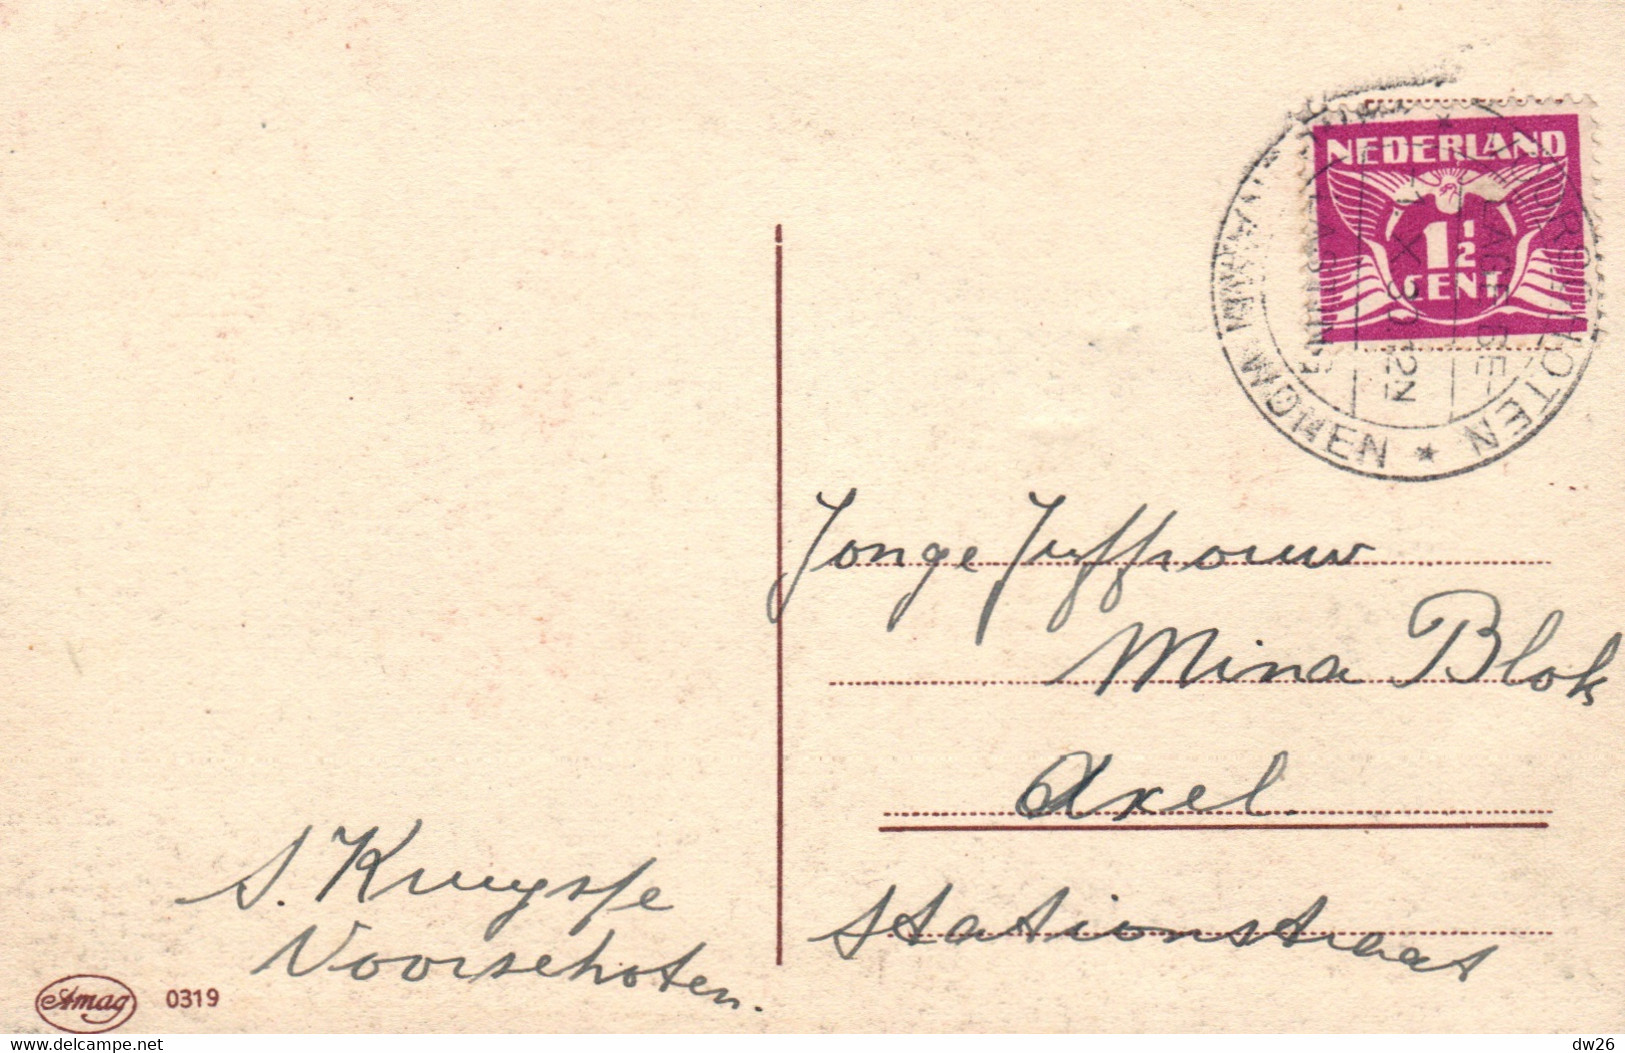 NEDERLAND
1½
CENT
VOORSCHOTEN
LAGE BE
-1 X 30.12N
LASTING
WONEN
Jonge Juffrouw
Mina Blok
Axel.
Stationstraat
S. Kruysse
Voorschoten.
Amag 0319
www.delcampe.net
dw26